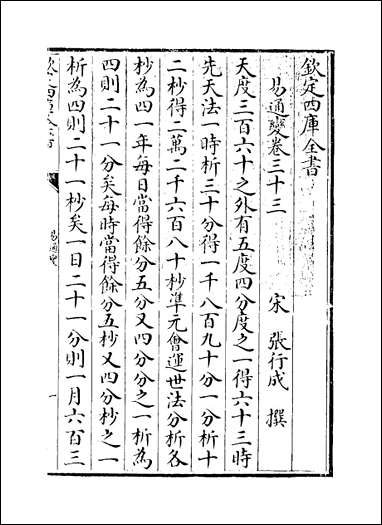 欽定四庫全書
易通變卷三十三
宋 張行成 撰
天度三百六十之外有五度四分度之一得六十三時
先天法一時析三十分得一千八百九十分一分析十
二秒得二萬二千六百八十秒凖元會運世法分析各
秒為四一年每日當得餘分五分又四分分之一析為
四則二十一分矣每時當得餘分五秒又四分秒之一
析為四則二十一秒矣一日二十一分則一月六百三
易通變